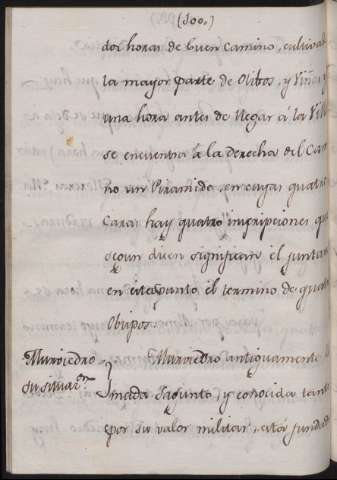 (100.)
dos horas de buen camino, cultivad
la mayor parte de Olibos, y Viñas y
una hora antes de llegar á la Vill
se encuentra á la derecha del Cam
no un Piramide, en cuyas quatro
Caras hay quatro inscripciones que
segun dicen significan el juntarse
en este punto el termino de quatro
Obispos.
Murviedro Murviedro antiguamente
su situaz.on mada Sagunto, y conocida tanto
por su valor militar, está fundada